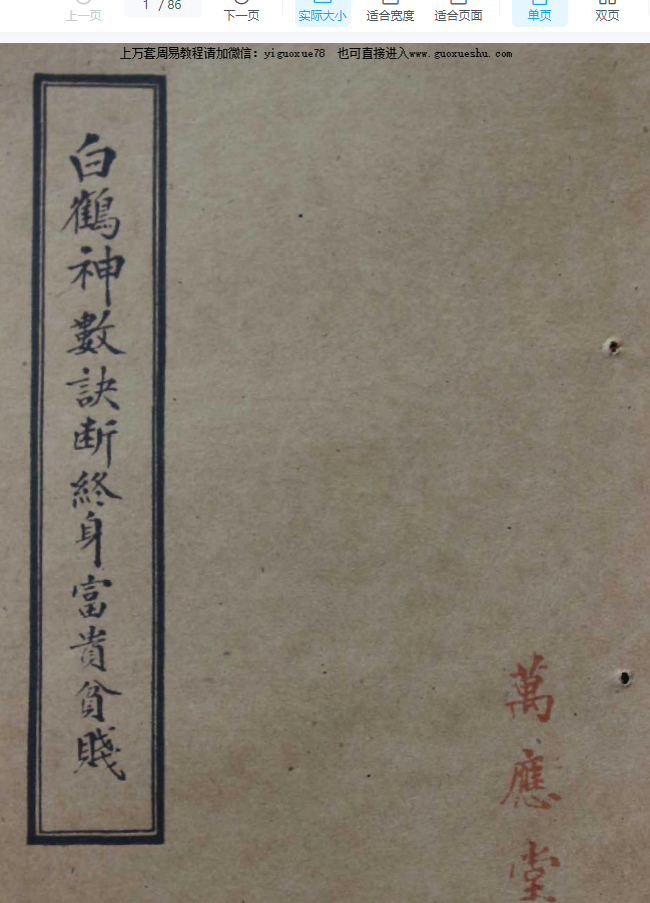 上一页
1 / 86
下一页
实际大小
适合宽度
适合页面
单页
双页
上万套周易教程请加微信：yiguoxue78 也可直接进入www.guoxueshu.com
白鶴神數訣断終身富貴貧賤
萬應堂